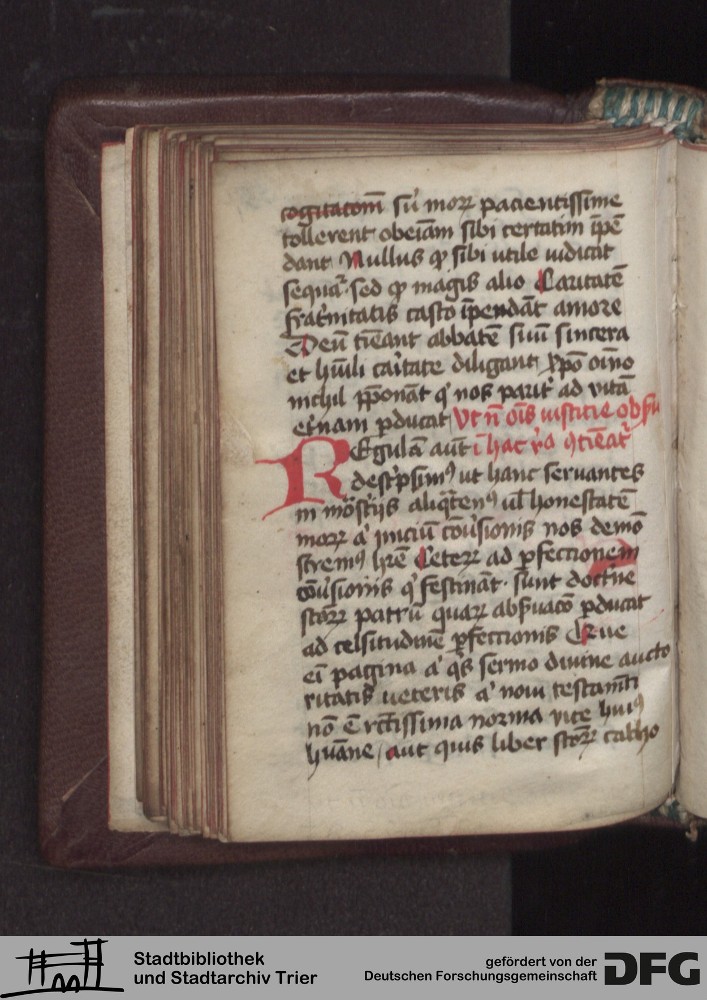 cogitacom̄ siu̾ moꝝ pacientissime
tollerent obeiām sibi certatim īpē
dant Nullus qꝫ sibi utile iudicat
sequat᷑ sed qꝫ magis alio Caritatē
frat᷑nitatis casto īpendāt amore
Deū tīeant abbatē suū sincera
et hūili ca᷑itate diligant xp̄o oīno
nichil p̄ponāt q' nos parit᷑ ad vitā
et᷑nam ꝑducat Vt nō oīs iusticie obs̄u
REgulā aūt ī hac r̄a ꝯtīeat᷑
desc᷑psimꝰ ut hanc servantes
in mōst᷑ijs aliq̄tenꝰ ul̄ honestatē
moꝝ a' iniciū cōu᷑sionis nos demō
stremꝰ h̄re Ceteꝝ ad ꝑfectionem
cōu᷑sionis q' festināt sunt doct᷑ne
sc̄oꝝ patrū quaꝝ abs̄uacō ꝑducat
ad celsitudinē ꝑfectionis Que
eī pagina a' q᷑s sermo divine aucto
ritatis veteris a' novi testam̄ti
nō ē rc̄tissima norma vite huīꝰ
hūane aut quis liber sc̄oꝝ catho
Stadtbibliothek
und Stadtarchiv Trier
gefördert von der
Deutschen Forschungsgemeinschaft
DFG